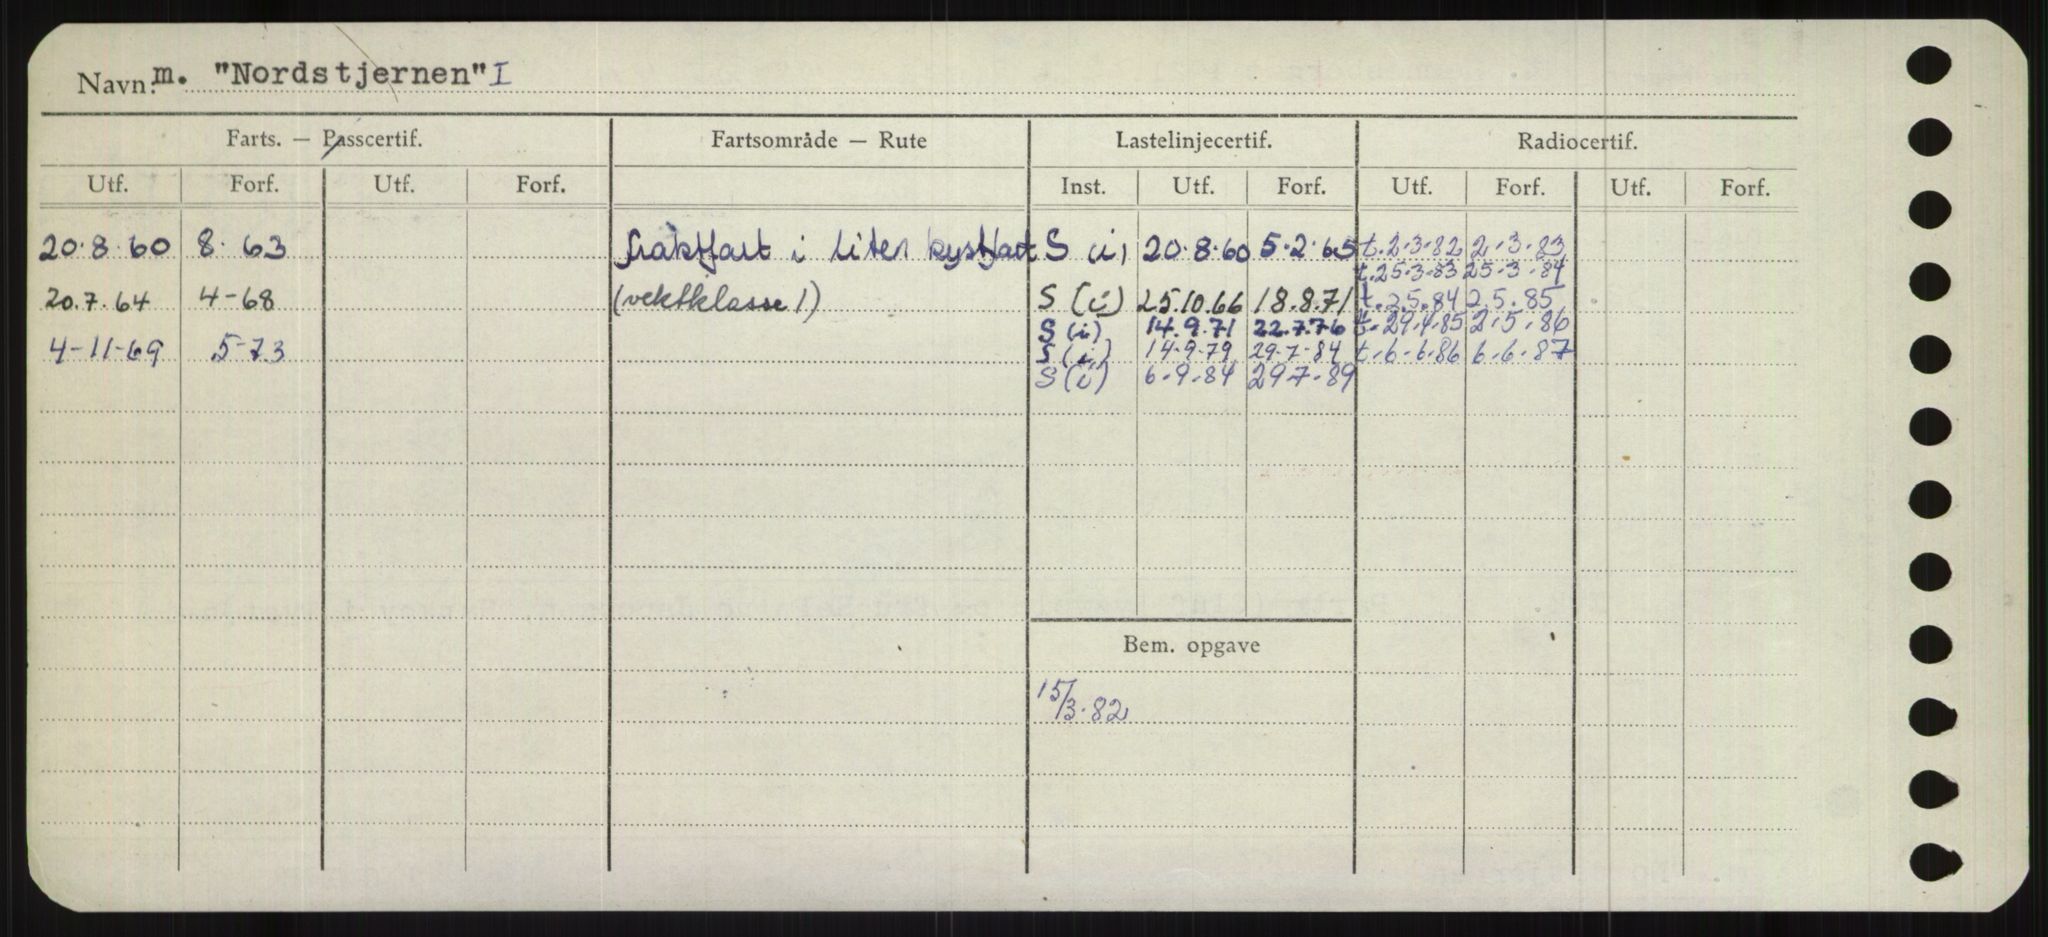 Navn: m. "Nordstjernen" I
Farts. — Passcertif. Fartsområde — Rute Lastelinjecertif. Radiocertif.
Utf. Forf. Utf. Forf. Inst. Utf. Forf. Utf. Forf. Utf. Forf.
20.8.60 8.63 fraktfart i liten kystfart S (i) 20.8.60 5.2.65 t.2.3.82 2.3.83
t.25.3.83 25.3.84
20.7.64 4-68 (vektklasse 1) S (i) 25.10.66 18.8.71 t.2.5.84 2.5.85
S (i) 14.9.71 22.7.76 t.29.4.85 2.5.86
4-11-69 5-73 S (i) 14.9.79 29.7.84 t.6.6.86 6.6.87
S (i) 6.9.84 29.7.89
Bem. opgave
15/3.82